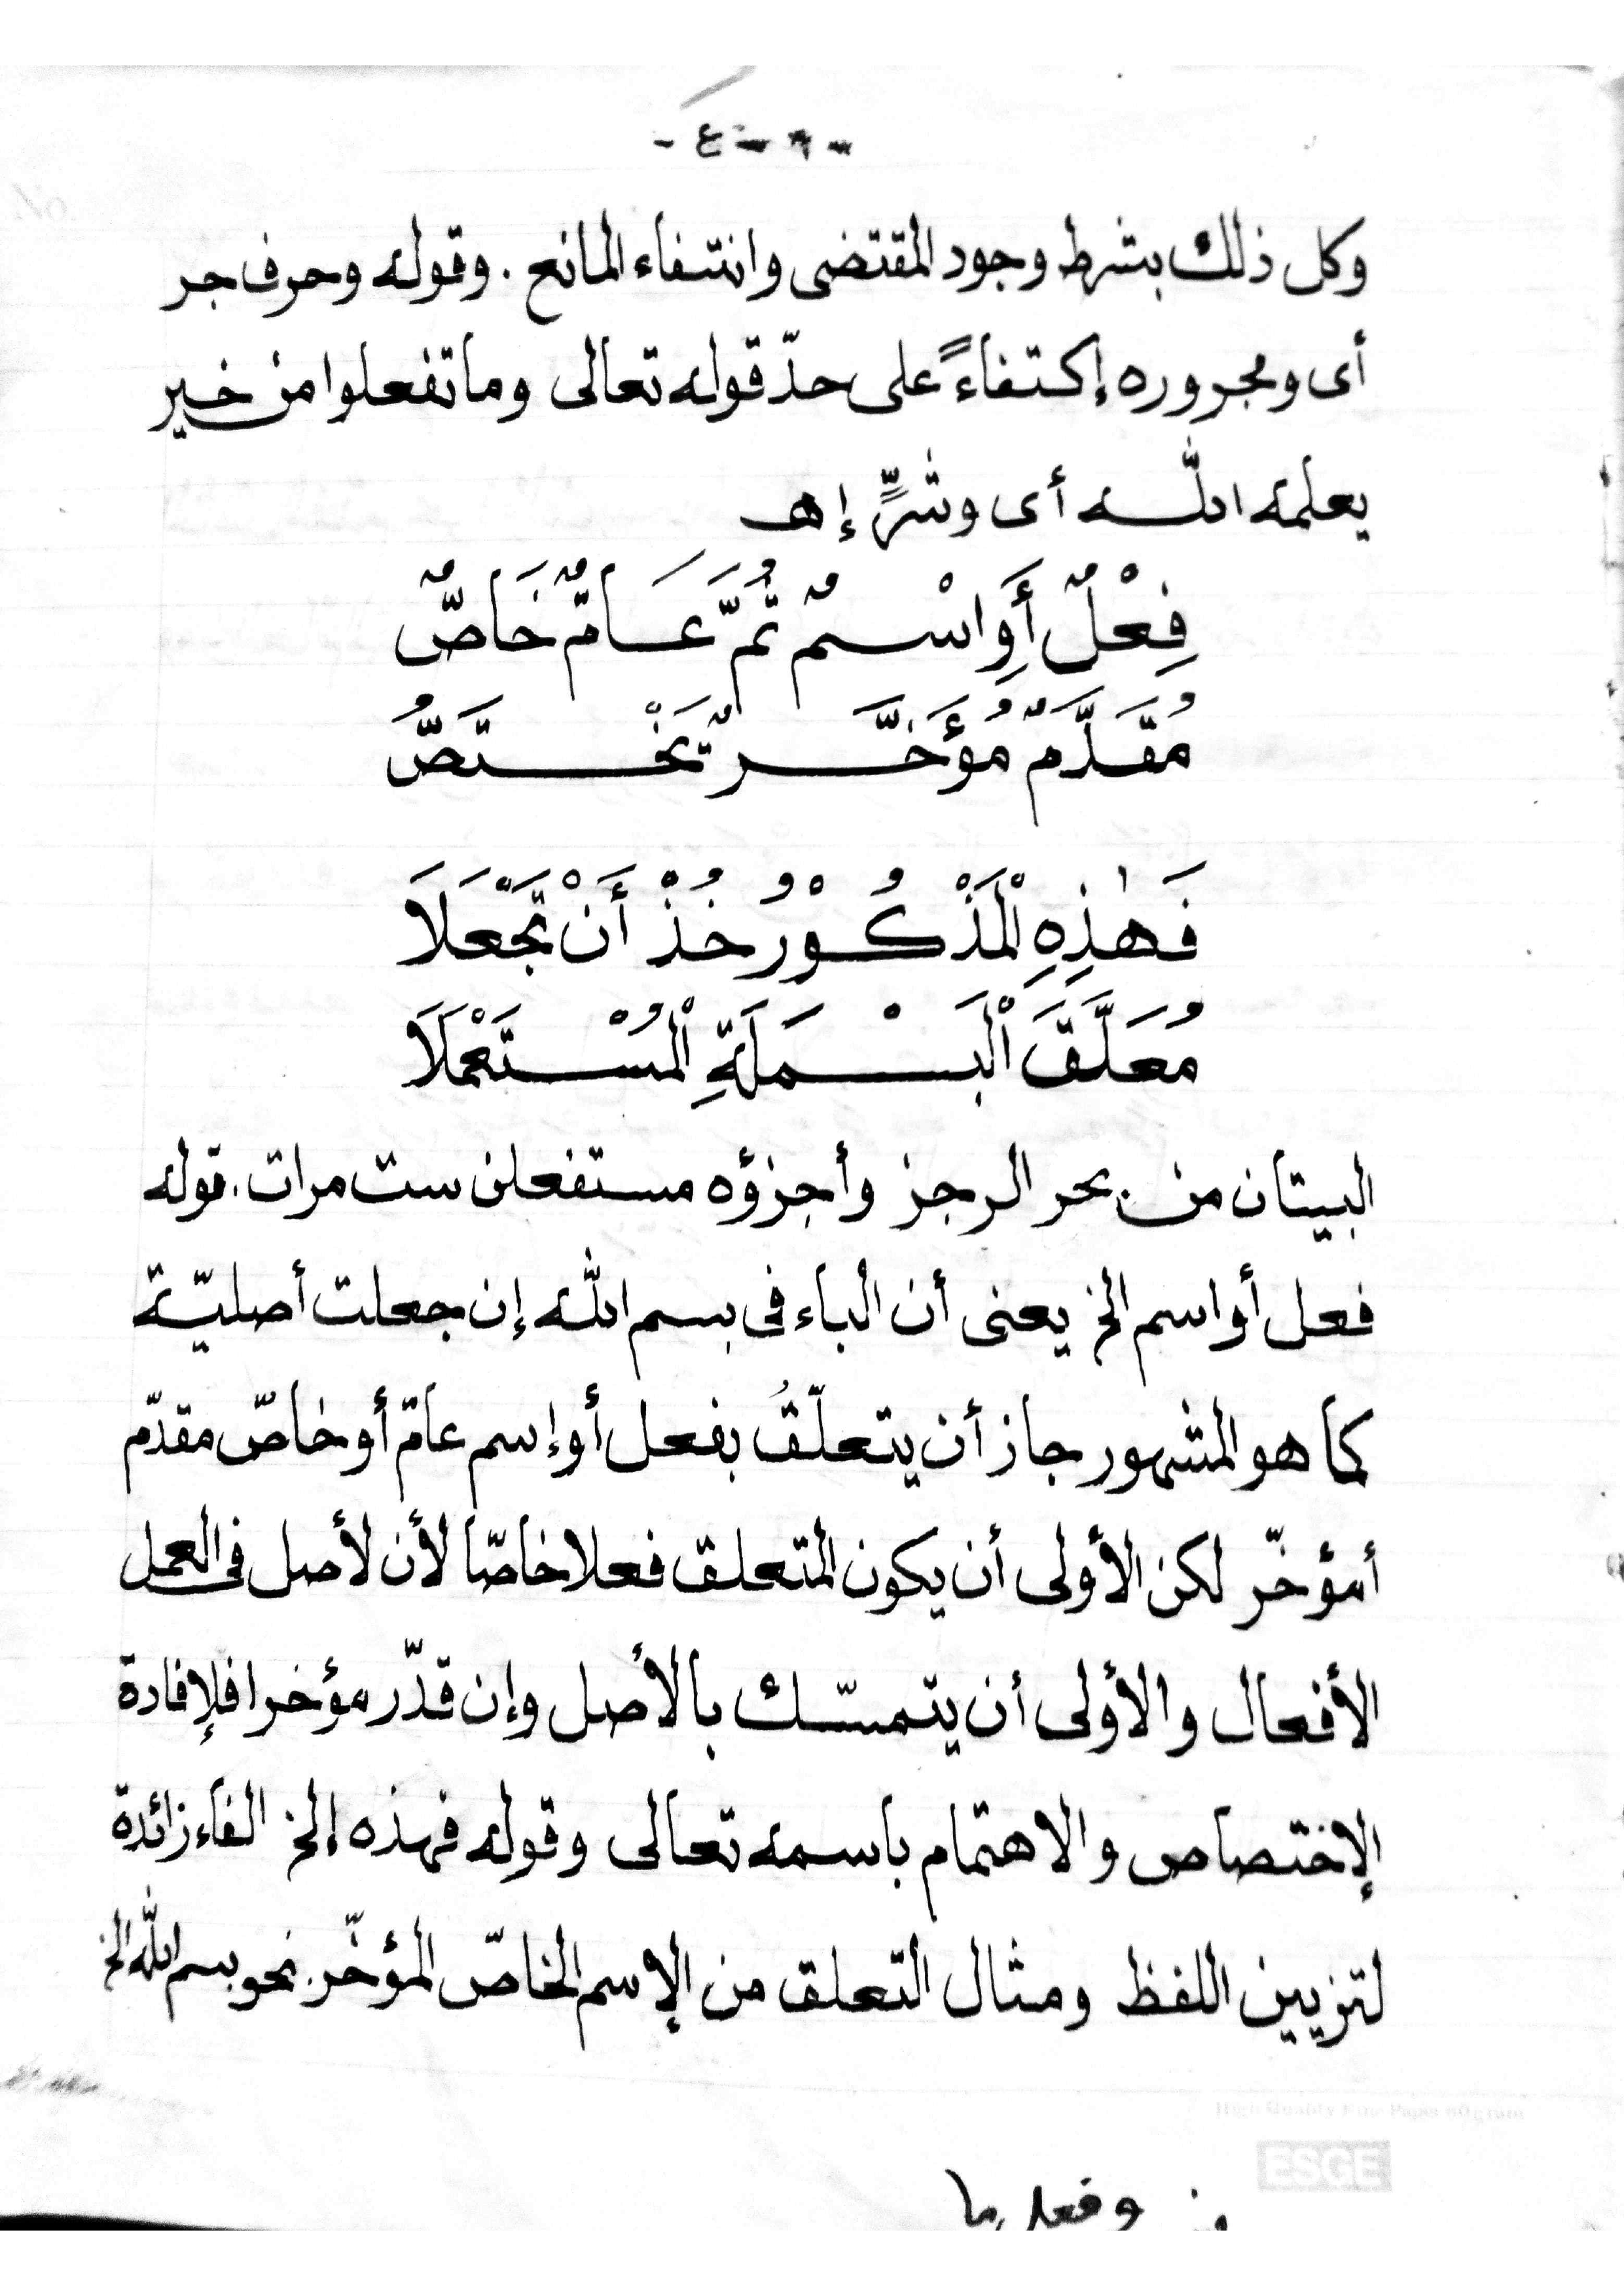 وكل ذلك بشرط وجود المقتضى وانتفاء المانع . وقوله وحرف جر
أى ومجروره إكتفاءً على حدّ قوله تعالى وما تفعلوا من خير
يعلمه الله أى وشرٍّ إهـ
فِعْلٌ أَوِ اسْمٌ ثُمَّ عَامٌّ خَاصٌّ
مُقَدَّمٌ مُؤَخَّرٌ تَخْتَصُّ
فَهٰذِهِ الْمَذْكُوْرُ خُذْ أَنْ تَجْعَلَا
مُعَلَّقَ الْبَسْمَلَةِ الْمُسْتَعْمَلَا
البيتان من بحر الرجز وأجزؤه مستفعلن ست مرات . قوله
فعل أو اسم الخ يعنى أن الباء فى بسم الله إن جعلت أصليّة
كما هو المشهور جاز أن يتعلّقُ بفعل أو إسم عامّ أو خاصّ مقدّم
أمؤخّر لكن الأولى أن يكون المتعلق فعلا خاصّا لأن لأصل فى العمل
الأفعال والأولى أن يتمسّك بالأصل وإن قدّر مؤخرا فلإفادة
الإختصاص والاهتمام باسمه تعالى وقوله فهذه إلخ الفاء زائدة
لتزيين اللفظ ومثال التعلق من الإسم الخاصّ المؤخّر. نحو بسم الله الخ
High Quality Fine Paper 60gram
ESGE